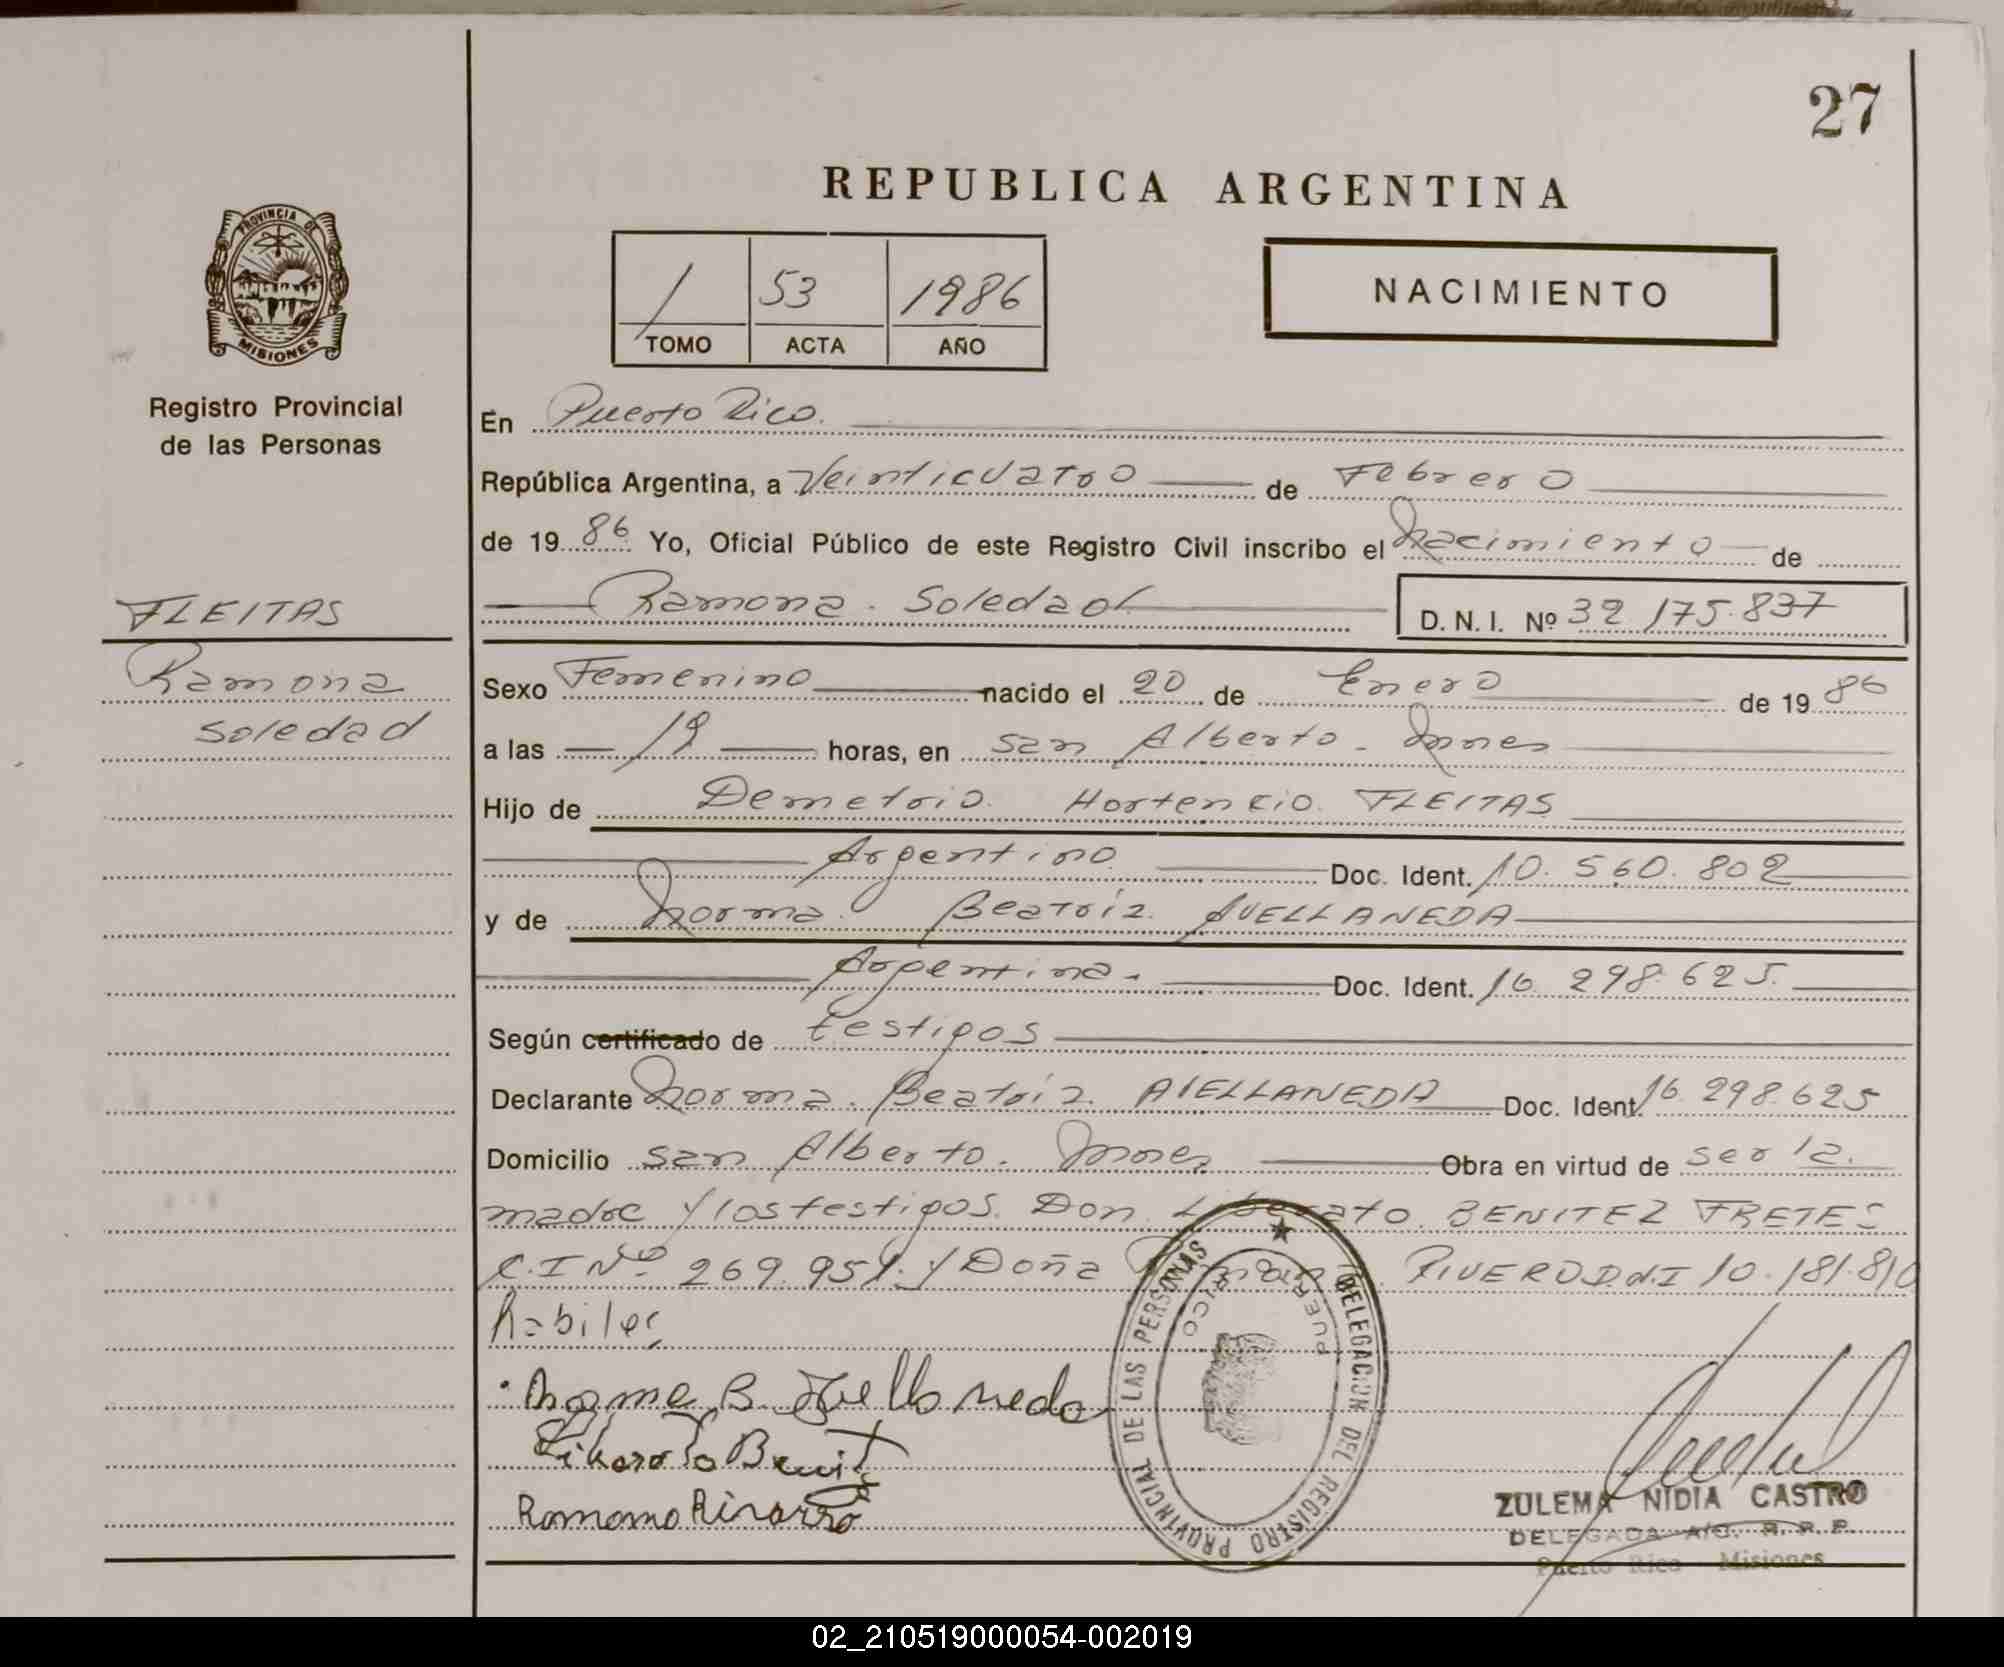 27
REPUBLICA ARGENTINA
PROVINCIA DE
MISIONES
Registro Provincial
de las Personas
1 53 1986
TOMO ACTA AÑO
NACIMIENTO
En Puerto Rico.
República Argentina, a Veinticuatro de Febrero
de 19 86 Yo, Oficial Público de este Registro Civil inscribo el Nacimiento de
Ramona. Soledad
D. N. I. Nº 32 175.837
FLEITAS
Ramona
Soledad
Sexo Femenino nacido el 20 de Enero de 19 86
a las 19 horas, en San Alberto. Mnes
Hijo de Demetrio. Hortencio. FLEITAS
Argentino. Doc. Ident. 10. 560. 802
y de Norma. Beatriz. AVELLANEDA
Argentina. Doc. Ident. 16 298.625.
Según certificado de testigos
Declarante Norma. Beatriz. AVELLANEDA Doc. Ident. 16 298.625
Domicilio San Alberto. Mnes. Obra en virtud de ser la.
madre y los testigos. Don. Liberato. BENITEZ FRETES
C.I Nº 269.951. y Doña RIVERO D.N.I 10.181.810
habiles
Norma B. Avellaneda
Liberato Benitez
DELEGACION DEL REGISTRO PROVINCIAL DE LAS PERSONAS
PUERTO RICO
ZULEMA NIDIA CASTRO
DELEGADA A/C. R. R. P.
Puerto Rico Misiones
02_210519000054-002019